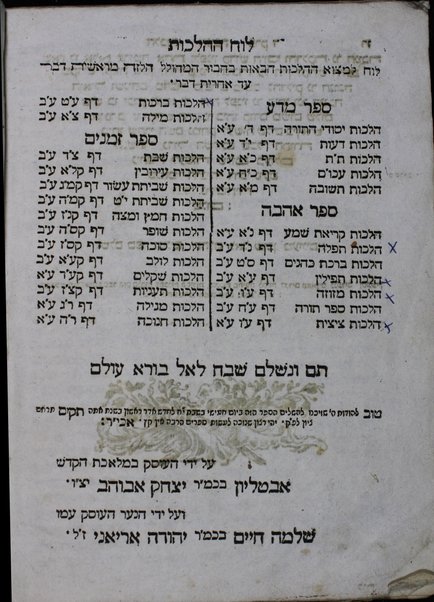 לוח ההלכות
לוח למצוא ההלכות הבאות בחבור המהולל הלזה מראשית דבר
עד אחרית דבר׃
ספר מדע
הלכות יסודי התורה דף ה׳ ע״א
הלכות דעות דף י״ד ע״א
הלכות ת״ת דף כ״א ע״א
הלכות עכו״ם דף כ״ח ע״א
הלכות תשובה דף מ״א ע״א
ספר אהבה
הלכות קריאת שמע דף נ״א ע״א
הלכות תפלה דף נ״ד ע״ב
הלכות ברכת כהנים דף ס״ט ע״ב
הלכות תפילין דף ע״א ע״ב
הלכות מזוזה דף ע״ו ע״ב
הלכות ספר תורה דף ע״ח ע״ב
הלכות ציצית דף ע״ו ע״ב
הלכות ברכות דף ע״ט ע״ב
הלכות מילה דף צ״א ע״ב
ספר זמנים
הלכות שבת דף צ״ד ע״ב
הלכות עירובין דף קל״א ע״ב
הלכות שביתת עשור דף קמ״ג ע״ב
הלכות שביתת י״ט דף קמ״ה ע״ב
הלכות חמץ ומצה דף קנ״ז ע״ב
הלכות שופר דף קס״ה ע״ב
הלכות סוכה דף קס״ז ע״ב
הלכות לולב דף ק״ע ע״ב
הלכות שקלים דף קע״ד ע״א
הלכות תעניות דף קצ״ז ע״ב
הלכות מגילה דף ר״ג ע״א
הלכות חנוכה דף ר״ה ע״א
תם ונשלם שבח לאל בורא עולם
טוב להודות ה׳ שזיכנו להשלים הספר הזה ביום חמישי בשבת לחדש אדר ראשון בשנת אתה תקום תרחם
ציון לפ״ק׃ יהי רצון שנזכה לעשות ספרים הרבה אין קץ׳ אכי״ר׃
על ידי העוסק במלאכת הקדש
אבטליון בכמ״ר יצחק אבוהב יצ״ו׳
ועל ידי הנער העוסק עמו
שלמה חיים בכמ״ר יהודה אריאני ז״ל׳